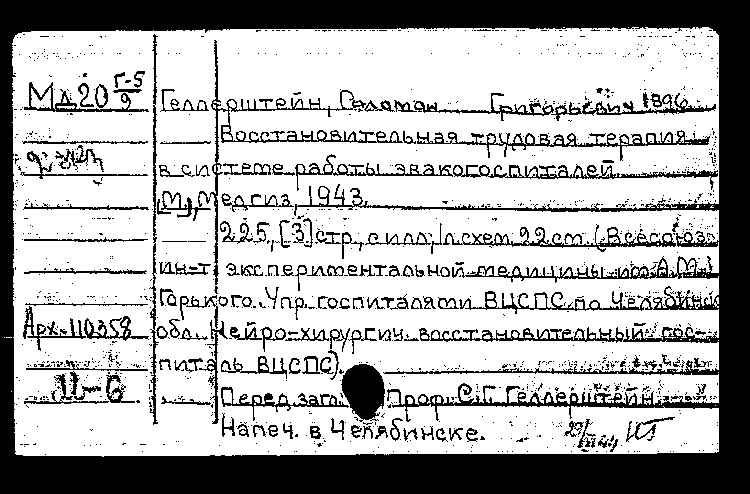 Мд20 Г-5/9
Геллерштейн, Соломон Григорьевич 1896
Восстановительная трудовая терапия
в системе работы эвакогоспиталей
[М.], Медгиз, 1943.
225, [3] стр., с илл.; 1 л. схем. 22 см. (Всесоюз.
ин-т экспериментальной медицины им. А.М.
Горького. Упр. госпиталями ВЦСПС по Челябинск.
Арх.-110358 обл. Нейро-хирургич. восстановительный гос-
питаль ВЦСПС).
Перед загл. Проф. С.Г. Геллерштейн
Напеч. в Челябинске.